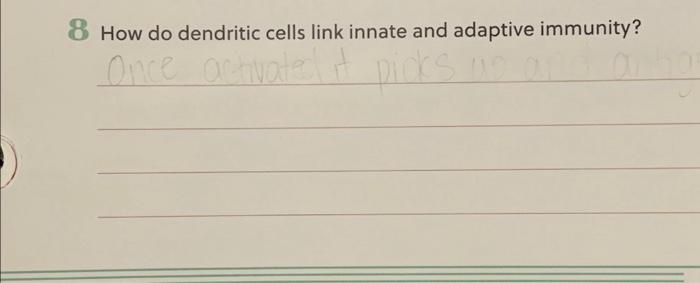 8 How do dendritic cells link innate and adaptive immunity?
Once activated it picks up